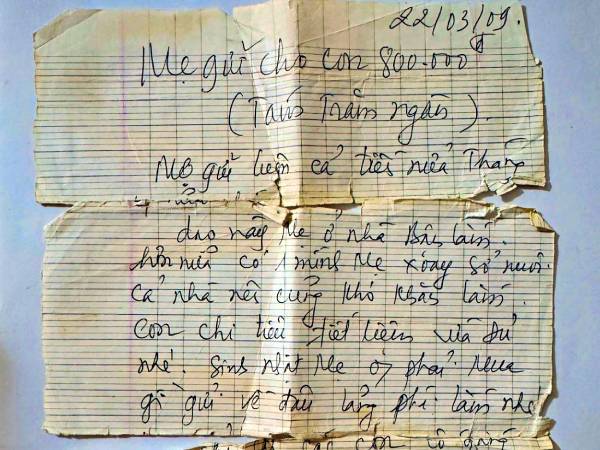 22/03/09.
Mẹ gửi cho con 800.000đ
(Tám Trăm ngàn).
Mẹ gửi luôn cả tiền nửa Tháng
dạo này Mẹ ở nhà Bận làm.
hơn nữa có 1 mình Mẹ xoay sở nuôi
cả nhà nên cũng khó khăn lắm.
Con chi tiêu tiết kiệm vừa đủ
nhé. Sinh nhật Mẹ ko phải Mua
gì gửi về đâu lãng phí lắm nhé
các con cố gắng